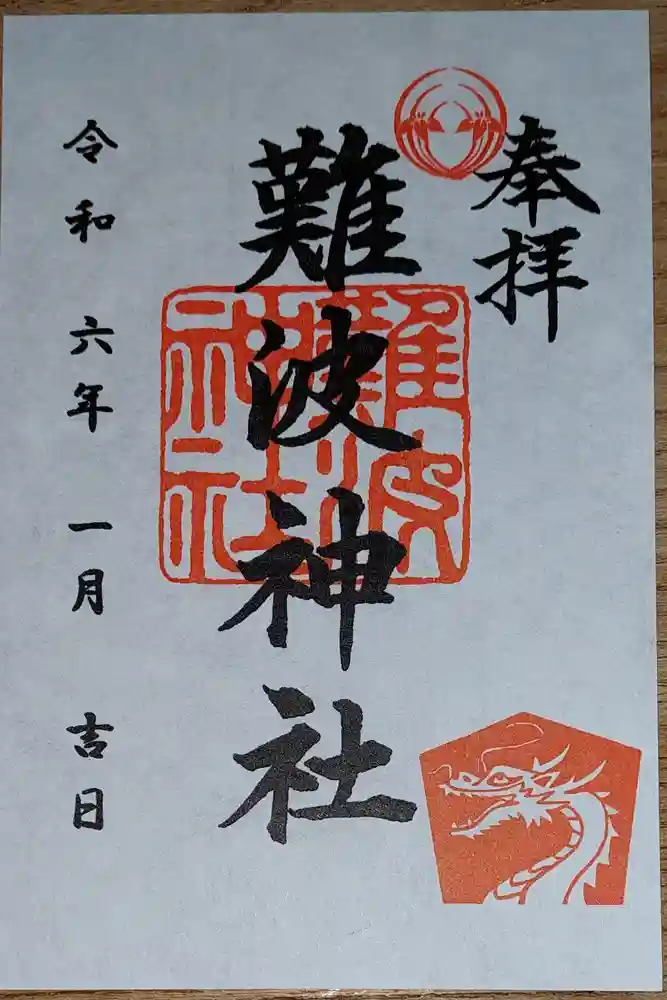 奉拝
難波神社
難波神社
令和六年一月吉日